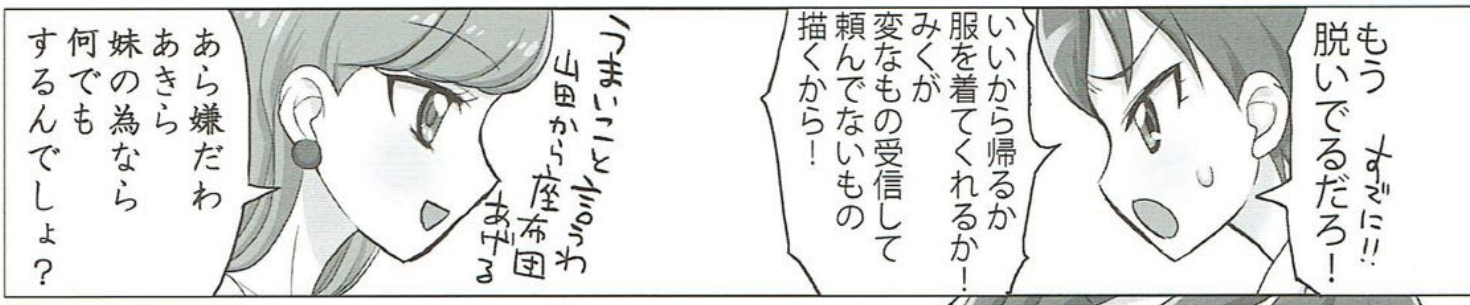 もう
脱いでるだろ！
すでに!!
いいから帰るか
服を着てくれるか！
みくが
変なもの受信して
頼んでないもの
描くから！
うまいこと言うわ
山田から座布団
あげる
あら嫌だわ
あきら
妹の為なら
何でも
するんでしょ？